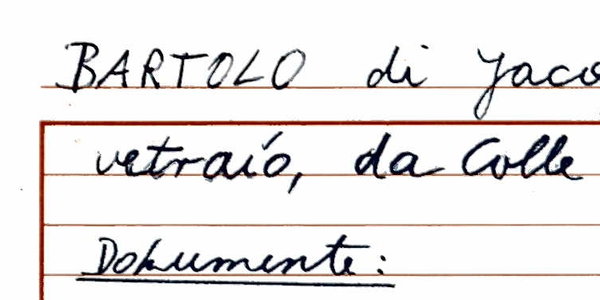 BARTOLO di Jaco
vetraió, da Colle
Dokumente: